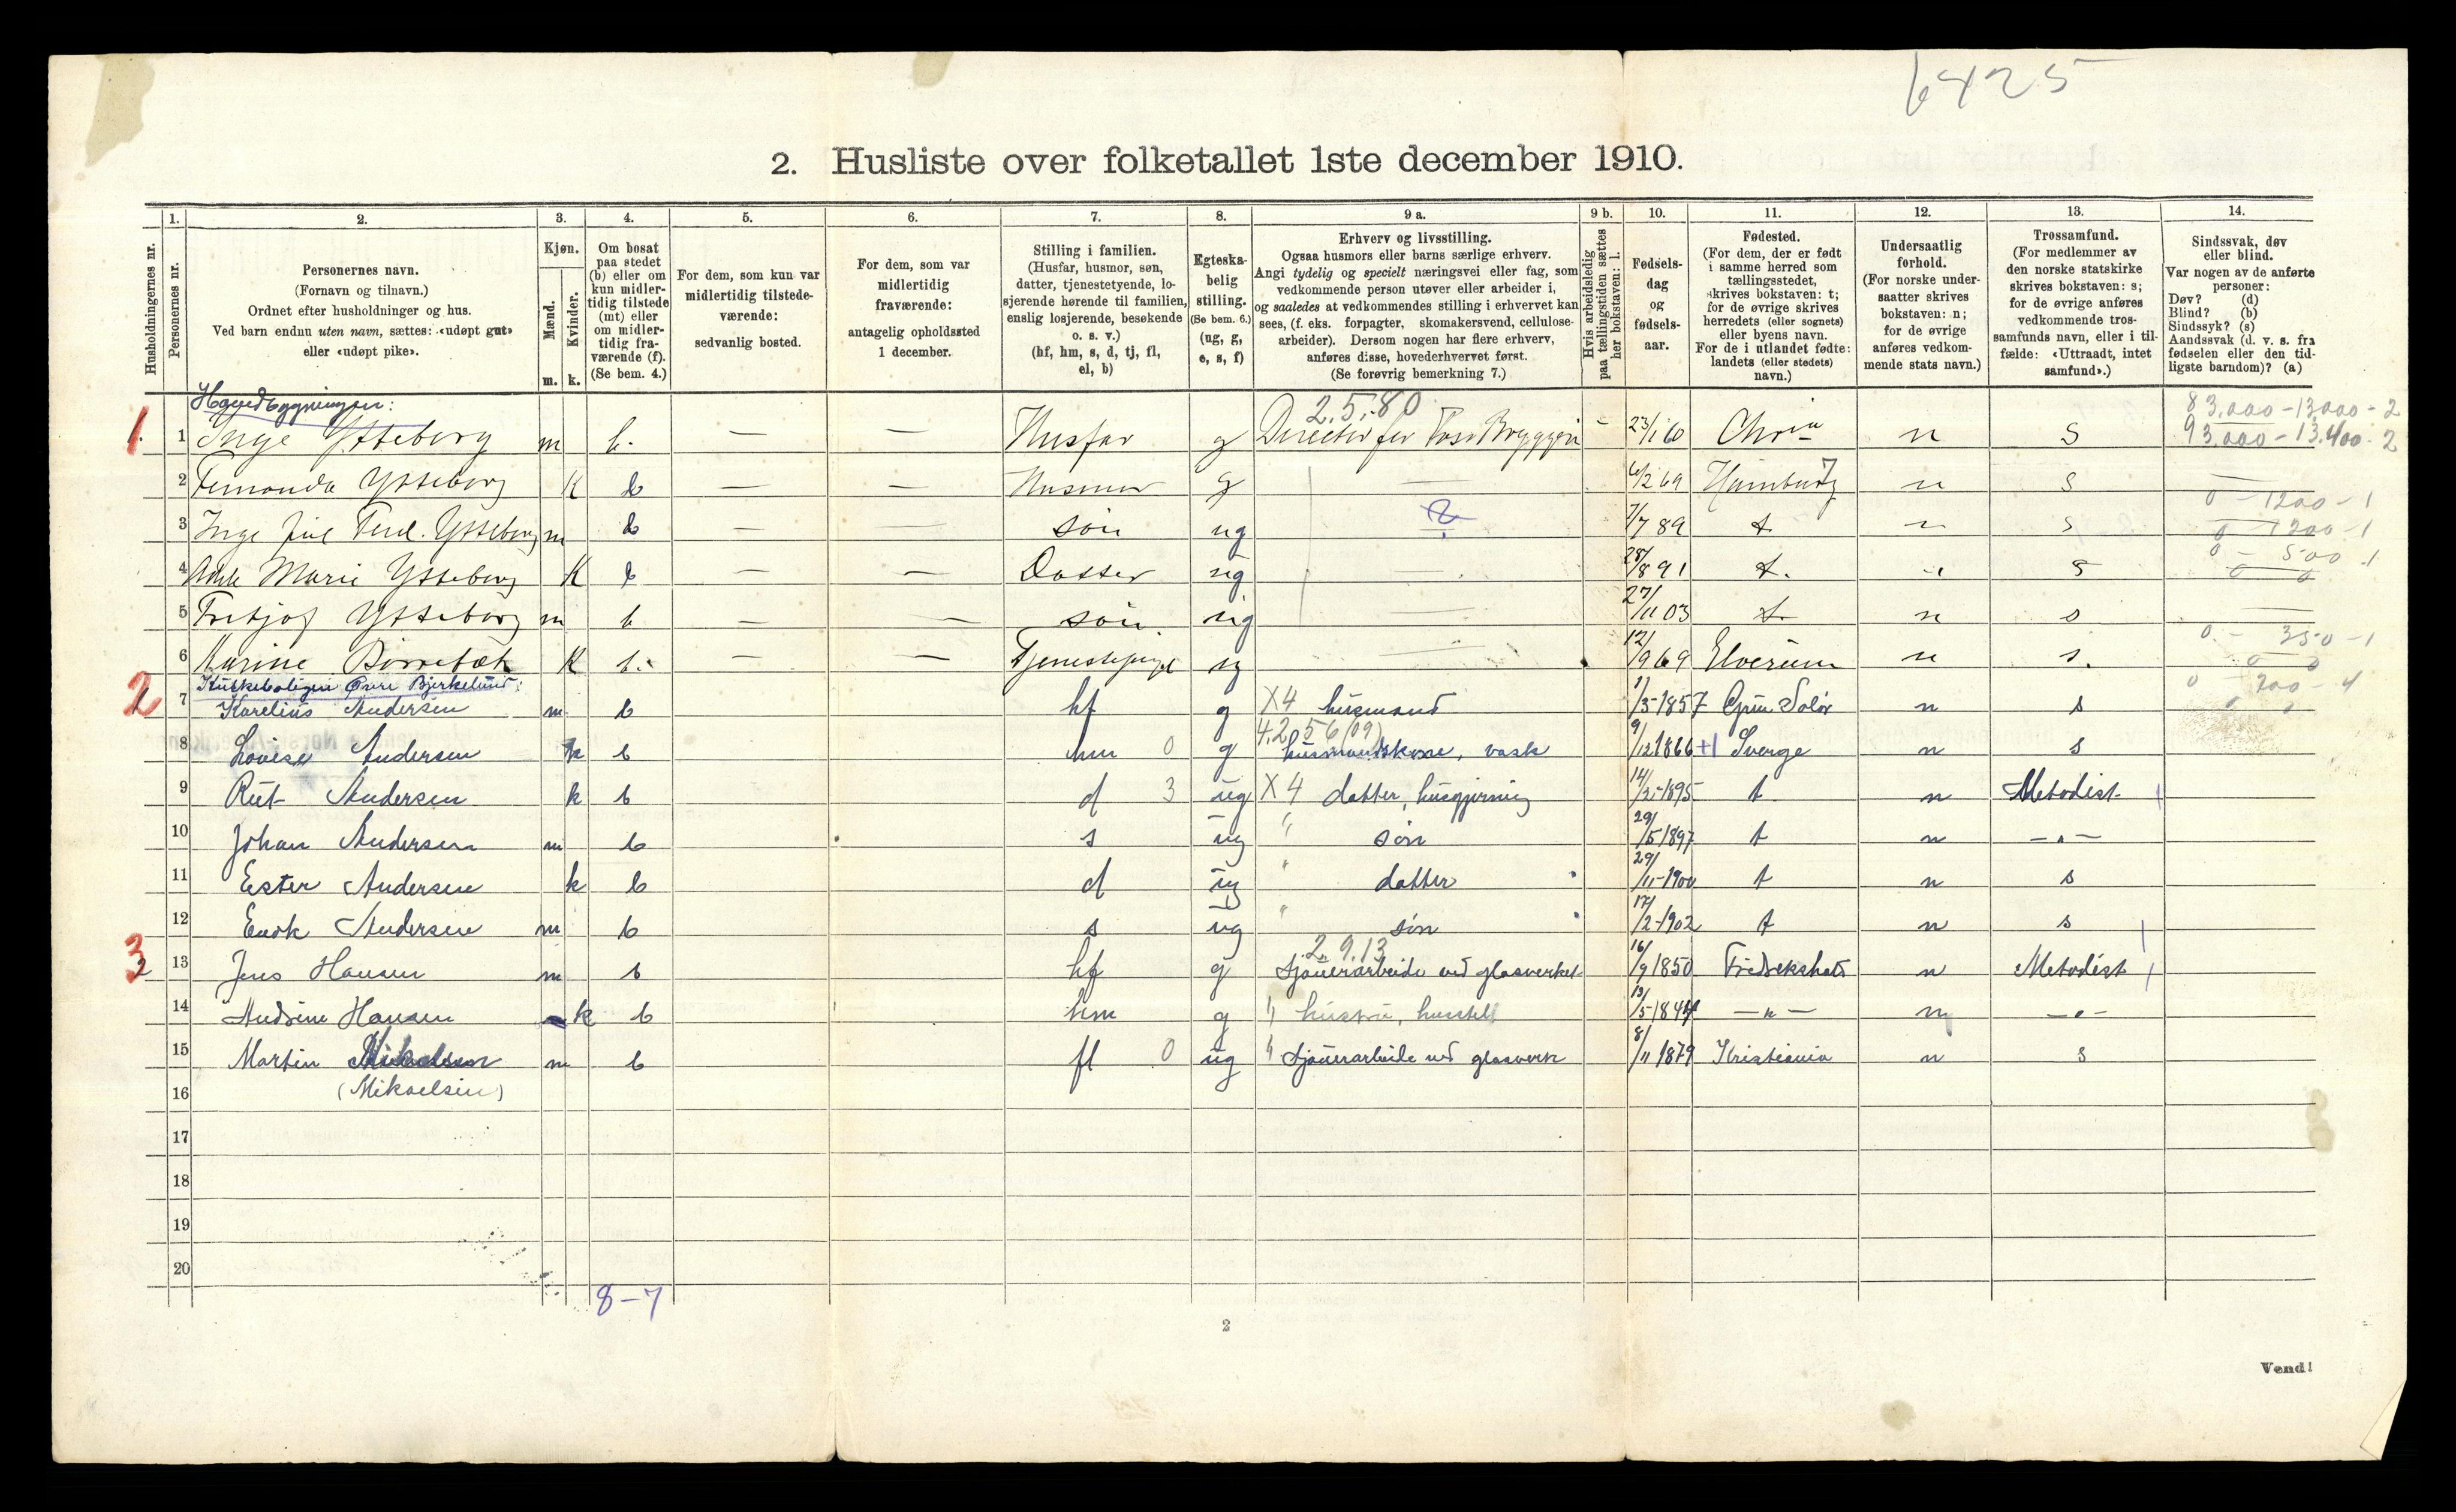 6425
2. Husliste over folketallet 1ste december 1910.
1. 2. 3. 4. 5. 6. 7. 8. 9 a. 9 b. 10. 11. 12. 13. 14.
Husholdningernes nr.
Personernes nr.
Personernes navn.
(Fornavn og tilnavn.)
Ordnet efter husholdninger og hus.
Ved barn endnu uten navn, sættes: «udøpt gut»
eller «udøpt pike».
Kjøn.
Mænd.
Kvinder.
m. k.
Om bosat
paa stedet
(b) eller om
kun midler-
tidig tilstede
(mt) eller
om midler-
tidig fra-
værende (f).
(Se bem. 4.)
For dem, som kun var
midlertidig tilstede-
værende:
sedvanlig bosted.
For dem, som var
midlertidig
fraværende:
antagelig opholdssted
1 december.
Stilling i familien.
(Husfar, husmor, søn,
datter, tjenestetyende, lo-
sjerende hørende til familien,
enslig losjerende, besøkende
o. s. v.)
(hf, hm, s, d, tj, fl,
el, b)
Egteska-
belig
stilling.
(Se bem. 6.)
(ug, g,
e, s, f)
Erhverv og livsstilling.
Ogsaa husmors eller barns særlige erhverv.
Angi tydelig og specielt næringsvei eller fag, som
vedkommende person utøver eller arbeider i,
og saaledes at vedkommendes stilling i erhvervet kan
sees, (f. eks. forpagter, skomakersvend, cellulose-
arbeider). Dersom nogen har flere erhverv,
anføres disse, hovederhvervet først.
(Se forøvrig bemerkning 7.)
Hvis arbeidsledig
paa tællingstiden sættes
her bokstaven: l.
Fødsels-
dag
og
fødsels-
aar.
Fødested.
(For dem, der er født
i samme herred som
tællingsstedet,
skrives bokstaven: t;
for de øvrige skrives
herredets (eller sognets)
eller byens navn.
For de i utlandet fødte:
landets (eller stedets)
navn.)
Undersaatlig
forhold.
(For norske under-
saatter skrives
bokstaven: n;
for de øvrige
anføres vedkom-
mende stats navn.)
Trossamfund.
(For medlemmer av
den norske statskirke
skrives bokstaven: s;
for de øvrige anføres
vedkommende tros-
samfunds navn, eller i til-
fælde: «Uttraadt, intet
samfund».)
Sindssvak, døv
eller blind.
Var nogen av de anførte
personer:
Døv? (d)
Blind? (b)
Sindssyk? (s)
Aandssvak (d. v. s. fra
fødselen eller den tid-
ligste barndom)? (a)
Hovedbygningen: 2.5.80 83.000-13000-2
1. 1 Inge Ytteborg m b. — — Husfar g Director for Foss Bryggeri - 23/1 60 Chria n S 93.000-13.400-2
2 Ytteborg K b — — Husmor g — 6/2 69 Hamburg n S —
0 - 1200 - 1
3 Inge Ferd. Ytteborg m b — — søn ug 7/7 89 t n s 0 1200-1
0 - 500 - 1
4 Marie Ytteborg K b — — Datter ug — 28/8 91 t. n s 0 0
5 Fritjof Ytteborg m b — — søn ug — 27/11 03 t n s —
0 - 350-1
6 K b. — — Tjenestepige ug — 12/9 69 Elverum n s. 0 0
Kuskeboligen Øvre Bjerkelund: 0 200 - 4
2 7 Karelius Andersen m b hf g X4 husmand 1/3-1857 Grue Solør n s
4.2 56 (09)
8 Lovise Andersen k b hm 0 g husmandskone, vask 9/12 1866 +1 Sverge n s
9 Rut Andersen k b d 3 ug X4 datter, husgjerning 14/2-1895 t n Metodist
10 Johan Andersen m b s ug " søn 29/5 1897 t n —"—
11 Ester Andersen k b d ug " datter 29/11-1900 t n s
12 Enok Andersen m b s ug " søn 17/2-1902 t n s
2.9.13
3 2 13 Jens Hansen m b hf g Sjauerarbeide ved glasverket 16/9 1850 Fredrikshald n Metodist
14 Andrine Hansen k b hm g " hustru, husstel 13/5-1844 —"— n —"—
15 Martin Mikaelsen m b fl 0 ug " Sjauerarbeide ved glasverk 8/11 1879 Kristiania n s
16 (Mikaelsen)
17
18
19
20
8-7
2
Vend!